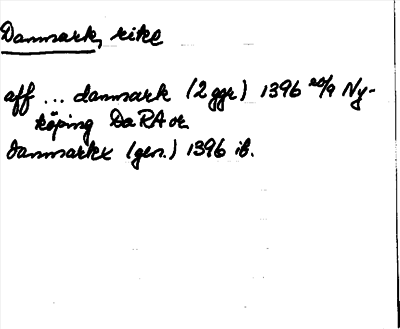 Danmark, rike
aff ... danmark (2 ggr) 1396 20/9 Ny-
köping DaRA or
danmarkx (gen.) 1396 ib.